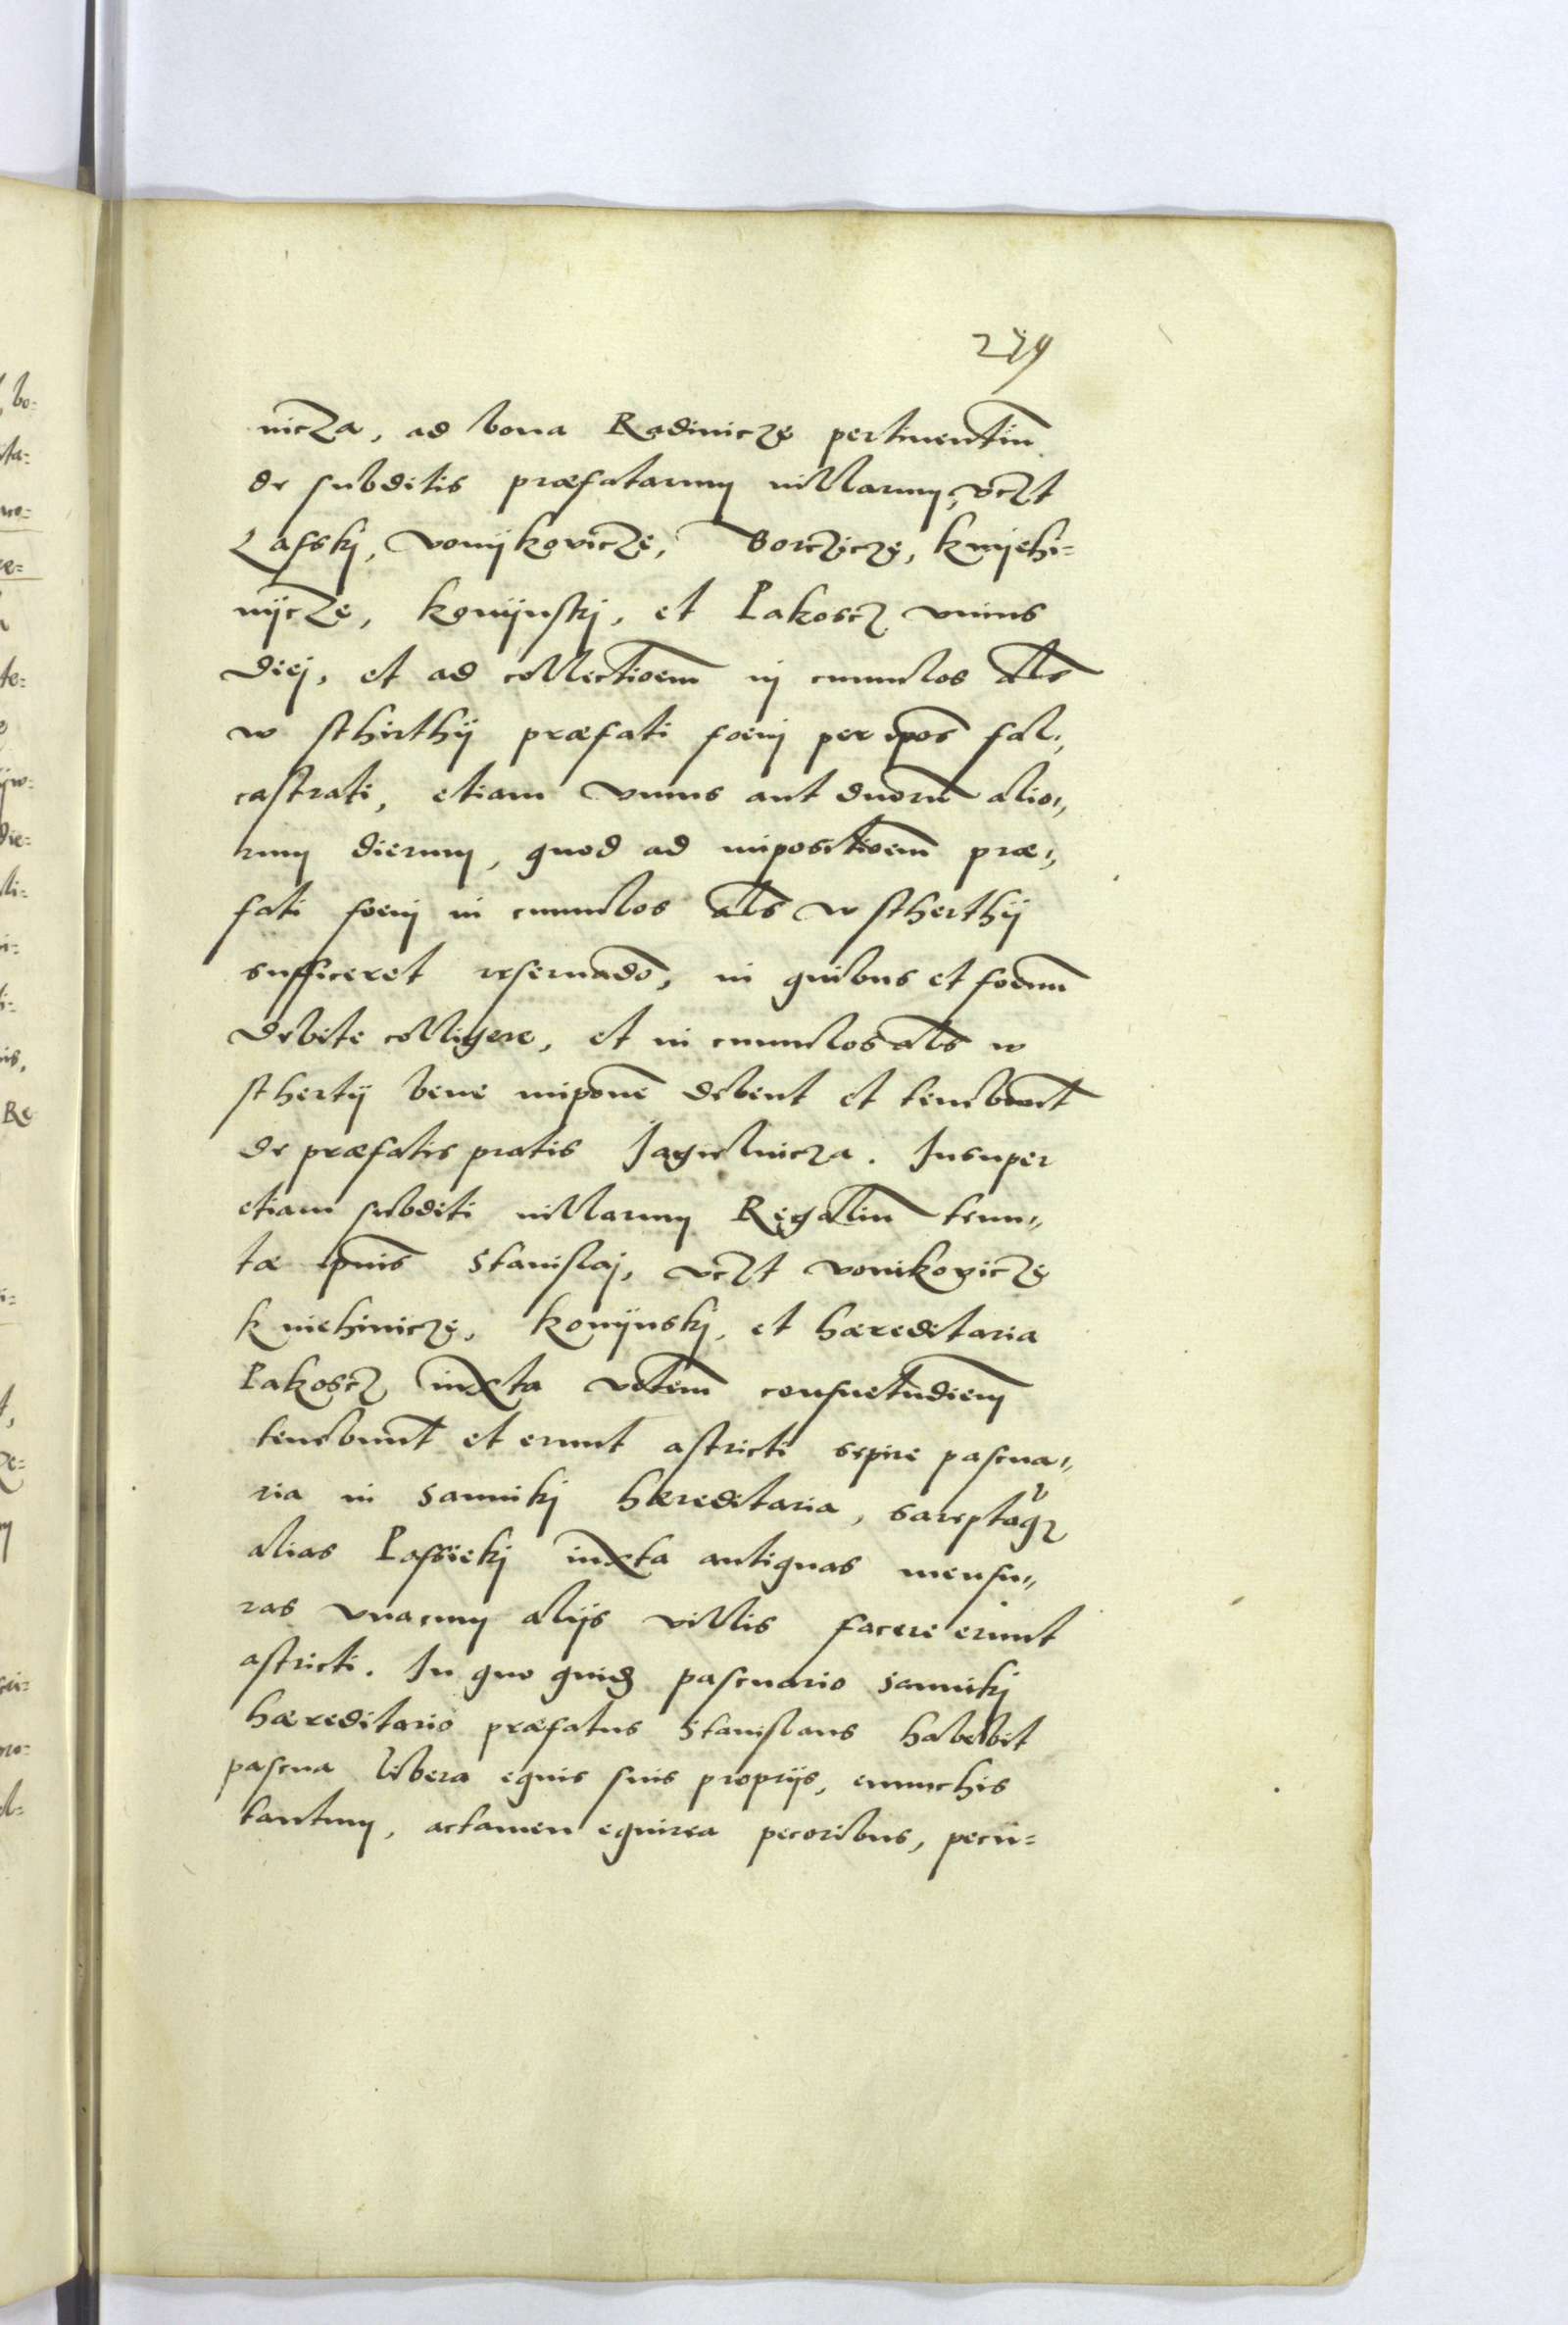 279
nicza, ad bona Radinicze pertinentiu͂
de subditis præfatarum villarum, vczt
Lasskj, Vonijkovicze, Borczicze, Knijehi=
nijcze, Konijuskj, et Pakoscz vnius
diej, et ad collectioem͂ in cumulos al͂s
w sthirthij præfati foenj per ipos͂ fal„
castrati, etiam vnius aut duoru͂ alio„
rum dierum, quod ad impositioem͂ præ„
fati foenj in cumulos al͂s w stherthij
sufficeret reseruãdo, in quibus et foenu͂
debite colligere, et in cumulos al͂s w
stherty bene impone͂ debent et tenebu͂nt
de præfatis pratis Jagielnicza. Insuper
etiam subditi villarum Regaliu͂ tenu„
tæ ipius͂ Stanislaj, vczt Vonikovicze
Kniehinicze, Konijuskj, et hæreditaria
Pakoscz iuxta vetem͂ consuetudiem͂
tenebunt͂ et erunt astricti sepire pascua„
ria in Sannikj hæreditaria, sareptaqz
alias Passiekj iuxta antiquas mensu„
ras vnacum alijs villis facere erunt
astricti. In quo quidz pascuario Sannikj
hæreditario præfatus Stanislaus habebit
pascua libera equis suis proprijs, eunuchis
tantum, actamen equirea pecoribus, pecu=